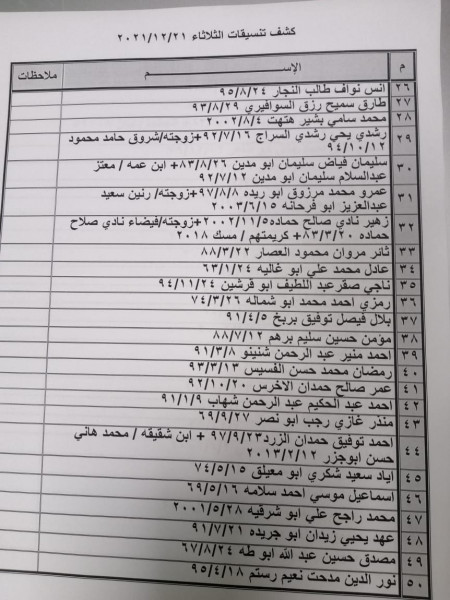 كشف تنسيقات الثلاثاء ٢٠٢١/١٢/٢١
م الإســـم ملاحظات
٢٦ انس نواف طالب النجار ٩٥/٨/٢٤
٢٧ طارق سميح رزق السوافيري ٩٣/٨/٢٩
٢٨ محمد سامي بشير هتهت ٢٠٠٢/٨/٤
٢٩ رشدي يحي رشدي السراج ٩٢/٧/١٦+زوجته/شروق حامد محمود
٩٤/١٠/١٢
٣٠ سليمان فياض سليمان ابو مدين ٨٣/٨/٢٦+ ابن عمه / معتز
عبدالسلام سليمان ابو مدين ٩٢/٧/١٢
٣١ عمرو محمد مرزوق ابو ريده ٩٧/٨/٨+زوجته/ رنين سعيد
عبدالعزيز ابو فرحانه ٢٠٠٣/٦/١٥
٣٢ زهير نادي صالح حماده ٢٠٠٢/١١/٥+زوجته/فيضاء نادي صلاح
حماده ٨٣/٣/٢٠+ كريمتهم / مسك ٢٠١٨
٣٣ ثائر مروان محمود العصار ٨٨/٣/٢٢
٣٤ عادل محمد علي ابو غاليه ٦٣/١/٢٤
٣٥ ناجي صقر عبد اللطيف ابو قرشين ٩٤/١١/٢٤
٣٦ رمزي احمد محمد ابو شماله ٧٤/٣/٢٦
٣٧ بلال فيصل توفيق بربخ ٩١/٤/٥
٣٨ مؤمن حسين سليم برهم ٨٨/٧/١٢
٣٩ احمد منير عبد الرحمن شنينو ٩١/٣/٨
٤٠ رمضان محمد حسن الفسيس ٩٣/٣/١٣
٤١ عمر صالح حمدان الاخرس ٩٢/١٠/٢٠
٤٢ احمد عبد الحكيم عبد الرحمن شهاب ٩١/١/٩
٤٣ منذر غازي رجب ابو نصر ٦٩/٩/٢٧
٤٤ احمد توفيق حمدان الزرد ٩٧/٩/٢٣ + ابن شقيقه / محمد هاني
حسن ابوجزر ٢٠١٣/٢/١٢
٤٥ اياد سعيد شكري ابو معيلق ٧٤/٥/١٥
٤٦ اسماعيل موسي احمد سلامه ٦٩/٥/١٦
٤٧ محمد راجح علي ابو شرقيه ٢٠٠١/٥/٢٨
٤٨ عهد يحيي زيدان ابو جريده ٩١/٧/٢١
٤٩ مصدق حسين عبد الله ابو طه ٦٧/٨/٢٤
٥٠ نور الدين مدحت نعيم رستم ٩٥/٤/١٨